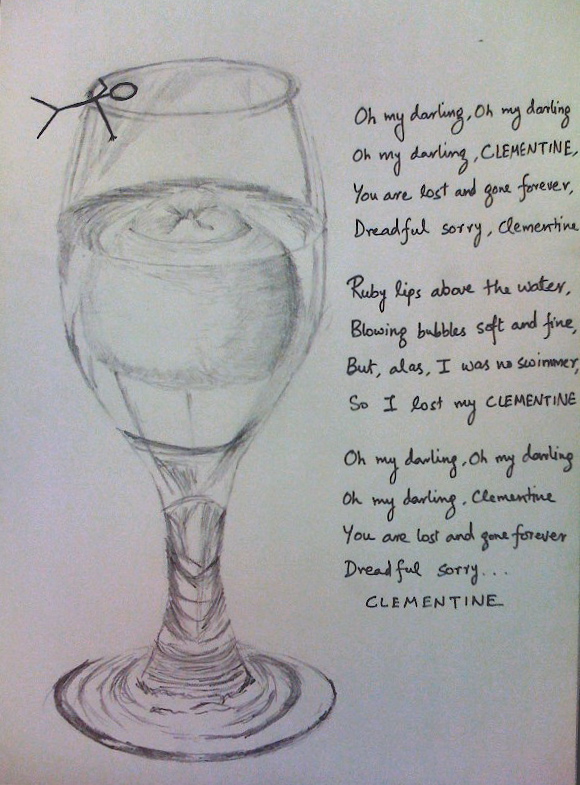 Oh my darling, Oh my darling
Oh my darling, CLEMENTINE,
You are lost and gone forever,
Dreadful sorry, Clementine
Ruby lips above the water,
Blowing bubbles soft and fine,
But, alas, I was no swimmer,
So I lost my CLEMENTINE
Oh my darling, Oh my darling
Oh my darling, Clementine
You are lost and gone forever
Dreadful sorry...
CLEMENTINE